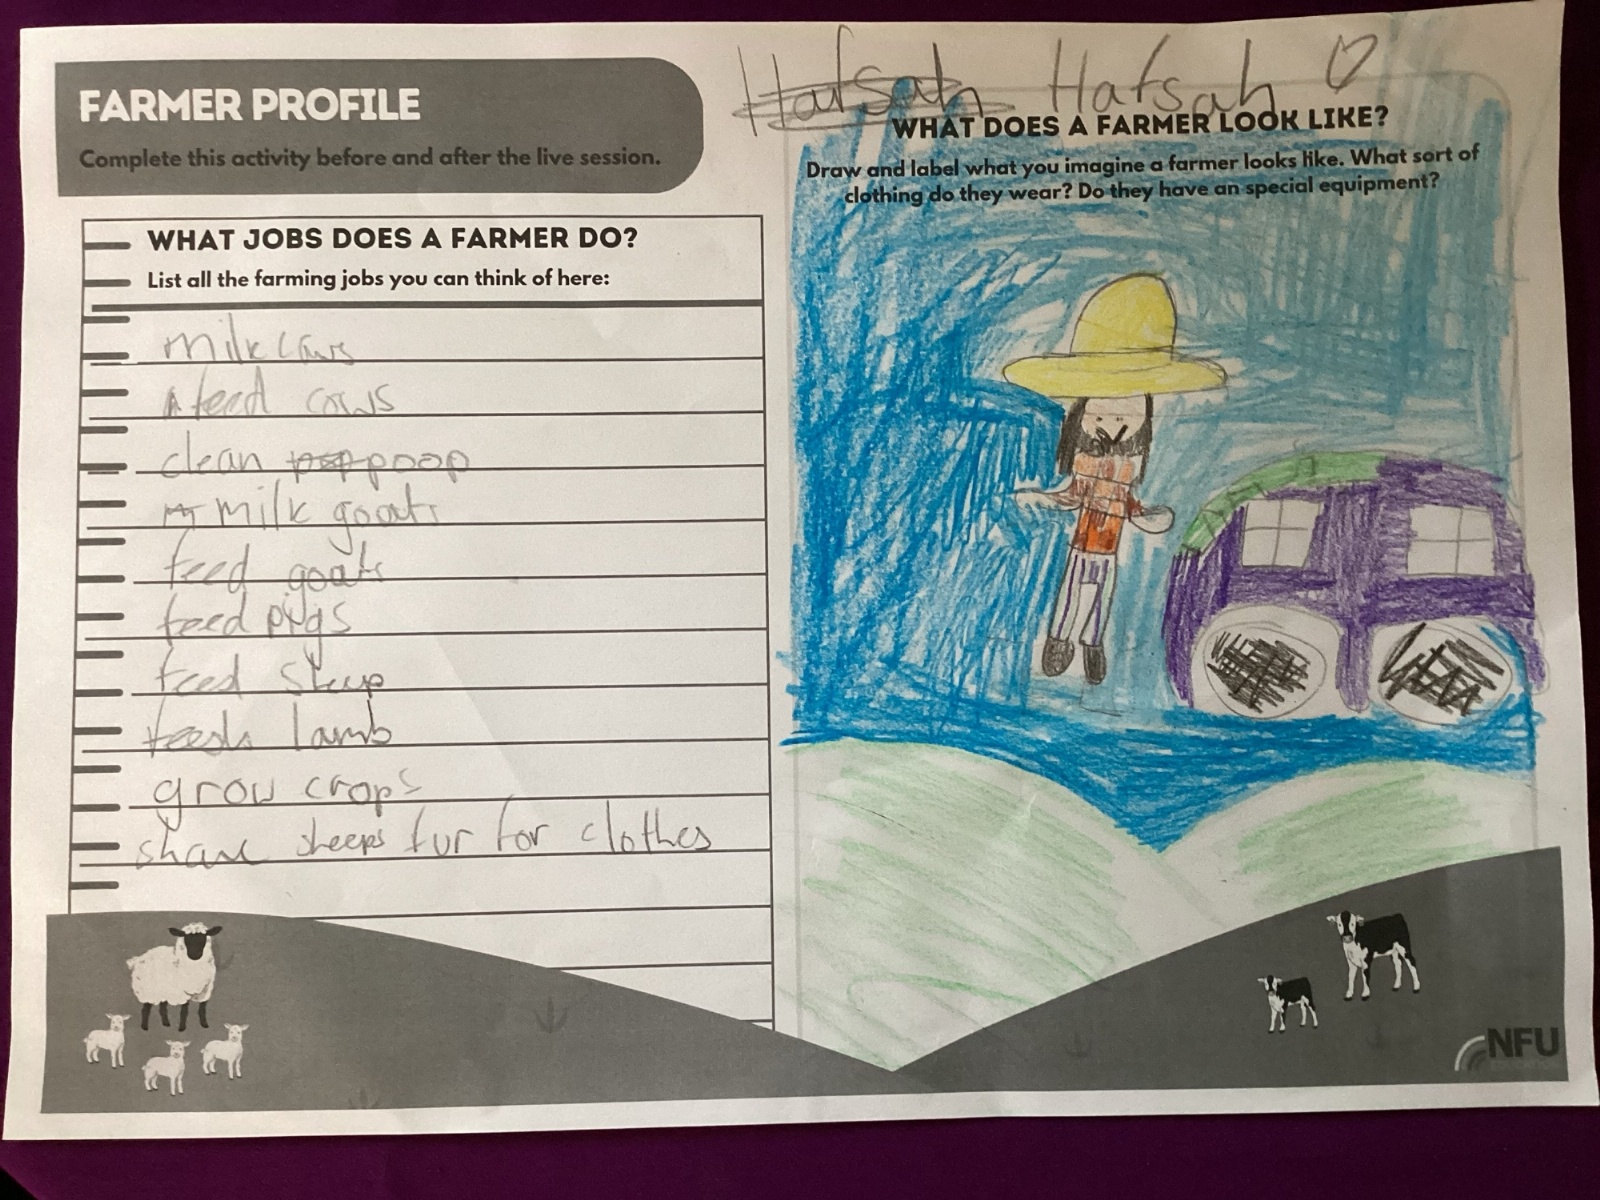 Hafsah Hafsah ♡
FARMER PROFILE
Complete this activity before and after the live session.
WHAT JOBS DOES A FARMER DO?
List all the farming jobs you can think of here:
milk cows
feed cows
clean poop
milk goats
feed goats
feed pigs
feed sheep
feeds lamb
grow crops
share sheeps fur for clothes
WHAT DOES A FARMER LOOK LIKE?
Draw and label what you imagine a farmer looks like. What sort of
clothing do they wear? Do they have an special equipment?
NFU